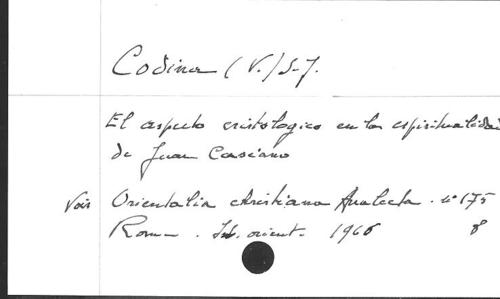 Codina (V.) S.J.
El aspecto cristologico en la espiritualidad
de Juan Casiano
Voir Orientalia christiana Analecta . n° 175
Roma . Inst. orient. 1966 8